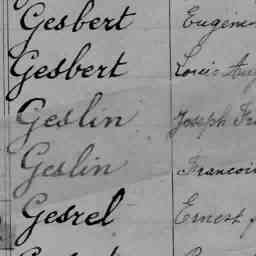 Gesbert Eugène
Gesbert Louis Aug
Geslin Joseph Fra
Geslin Francois
Gesrel Ernest